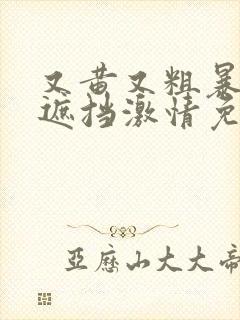 又黄又粗暴
遮挡激情免
亞歷山大大帝